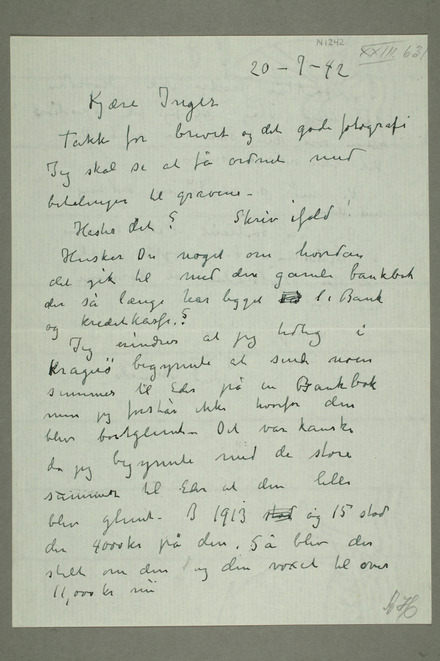 N1242
XXIII 63
20-9-42
Kjære Inger
Takk for brevet og det gode fotografi
Jeg skal se at få ordnet med
betalinger til gravene-
Haster det? Skriv ifald!
Husker Du noget om hvordan
det gik til med den gamle bankbok
der så længe har ligget i Bank
og kredittkasse?
Jeg erindrer at jeg tidlig i
Kragerø begynnte at sende noen
summer til Eder på en Bankbok
men jeg forstår ikke hvorfor den
blev bortglemt- Det var kanske
da jeg begynnte med de store
summer til Eder at den lille
blev glemt- I 1913 og 15 stod
der 4000kr på den. Så blev der
stilt om den og den voxet til over
11,000kr nu